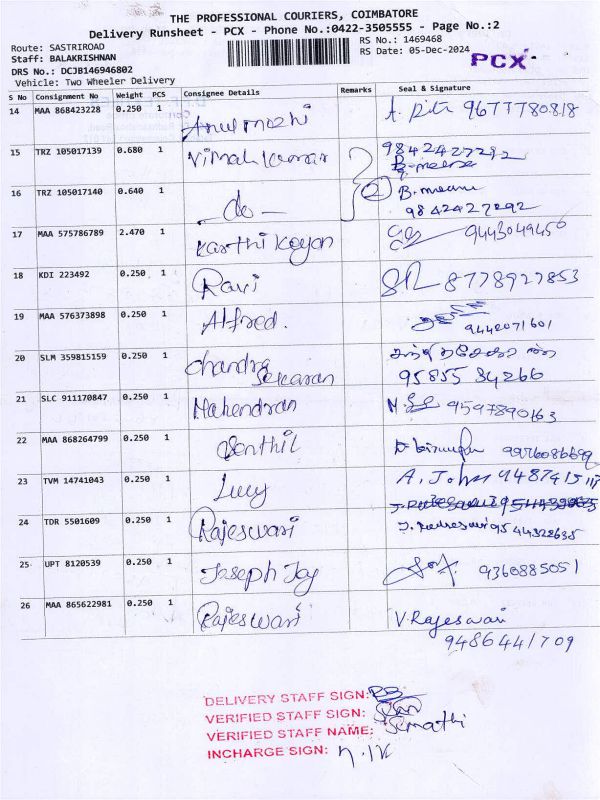 THE PROFESSIONAL COURIERS, COIMBATORE
Delivery Runsheet - PCX - Phone No.:0422-3505555 - Page No.:2
Route: SASTRIROAD
RS No.: 1469468
Staff: BALAKRISHNAN
RS Date: 05-Dec-2024
PCX
DRS No.: DCJB146946802
Vehicle: Two Wheeler Delivery
S No Consignment No Weight PCS Consignee Details Remarks Seal & Signature
14 MAA 868423228 0.250 1 9677780818
15 TRZ 105017139 0.680 1 Vimal kumar 9842427292
16 TRZ 105017140 0.640 1 - do - 2 B. meena
9842427292
17 MAA 575786789 2.470 1 Karthi Keyan 9443049450
18 KDI 223492 0.250 1 Ravi 8778927853
19 MAA 576373898 0.250 1 Alfred. 9442071601
20 SLM 359815159 0.250 1 Chandra
Sekaran 95855 34266
21 SLC 911170847 0.250 1 Mahendran 9597890163
22 MAA 868264799 0.250 1 Senthil
23 TVM 14741043 0.250 1 Lucy A. John
24 TDR 5501609 0.250 1 Rajeswari 95 44322635
25 UPT 8120539 0.250 1 Joseph Joy 9360885051
26 MAA 865622981 0.250 1 Rajeswari V. Rajeswari
9486441709
DELIVERY STAFF SIGN:
VERIFIED STAFF SIGN:
VERIFIED STAFF NAME: Sumathi
INCHARGE SIGN: